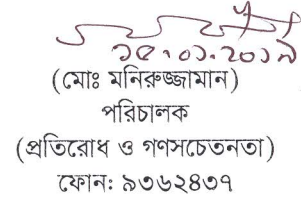 ১৫.০১.২০১৯
(মোঃ মনিরুজ্জামান)
পরিচালক
(প্রতিরোধ ও গণসচেতনতা)
ফোন: ৯৩৬২৪৩৭